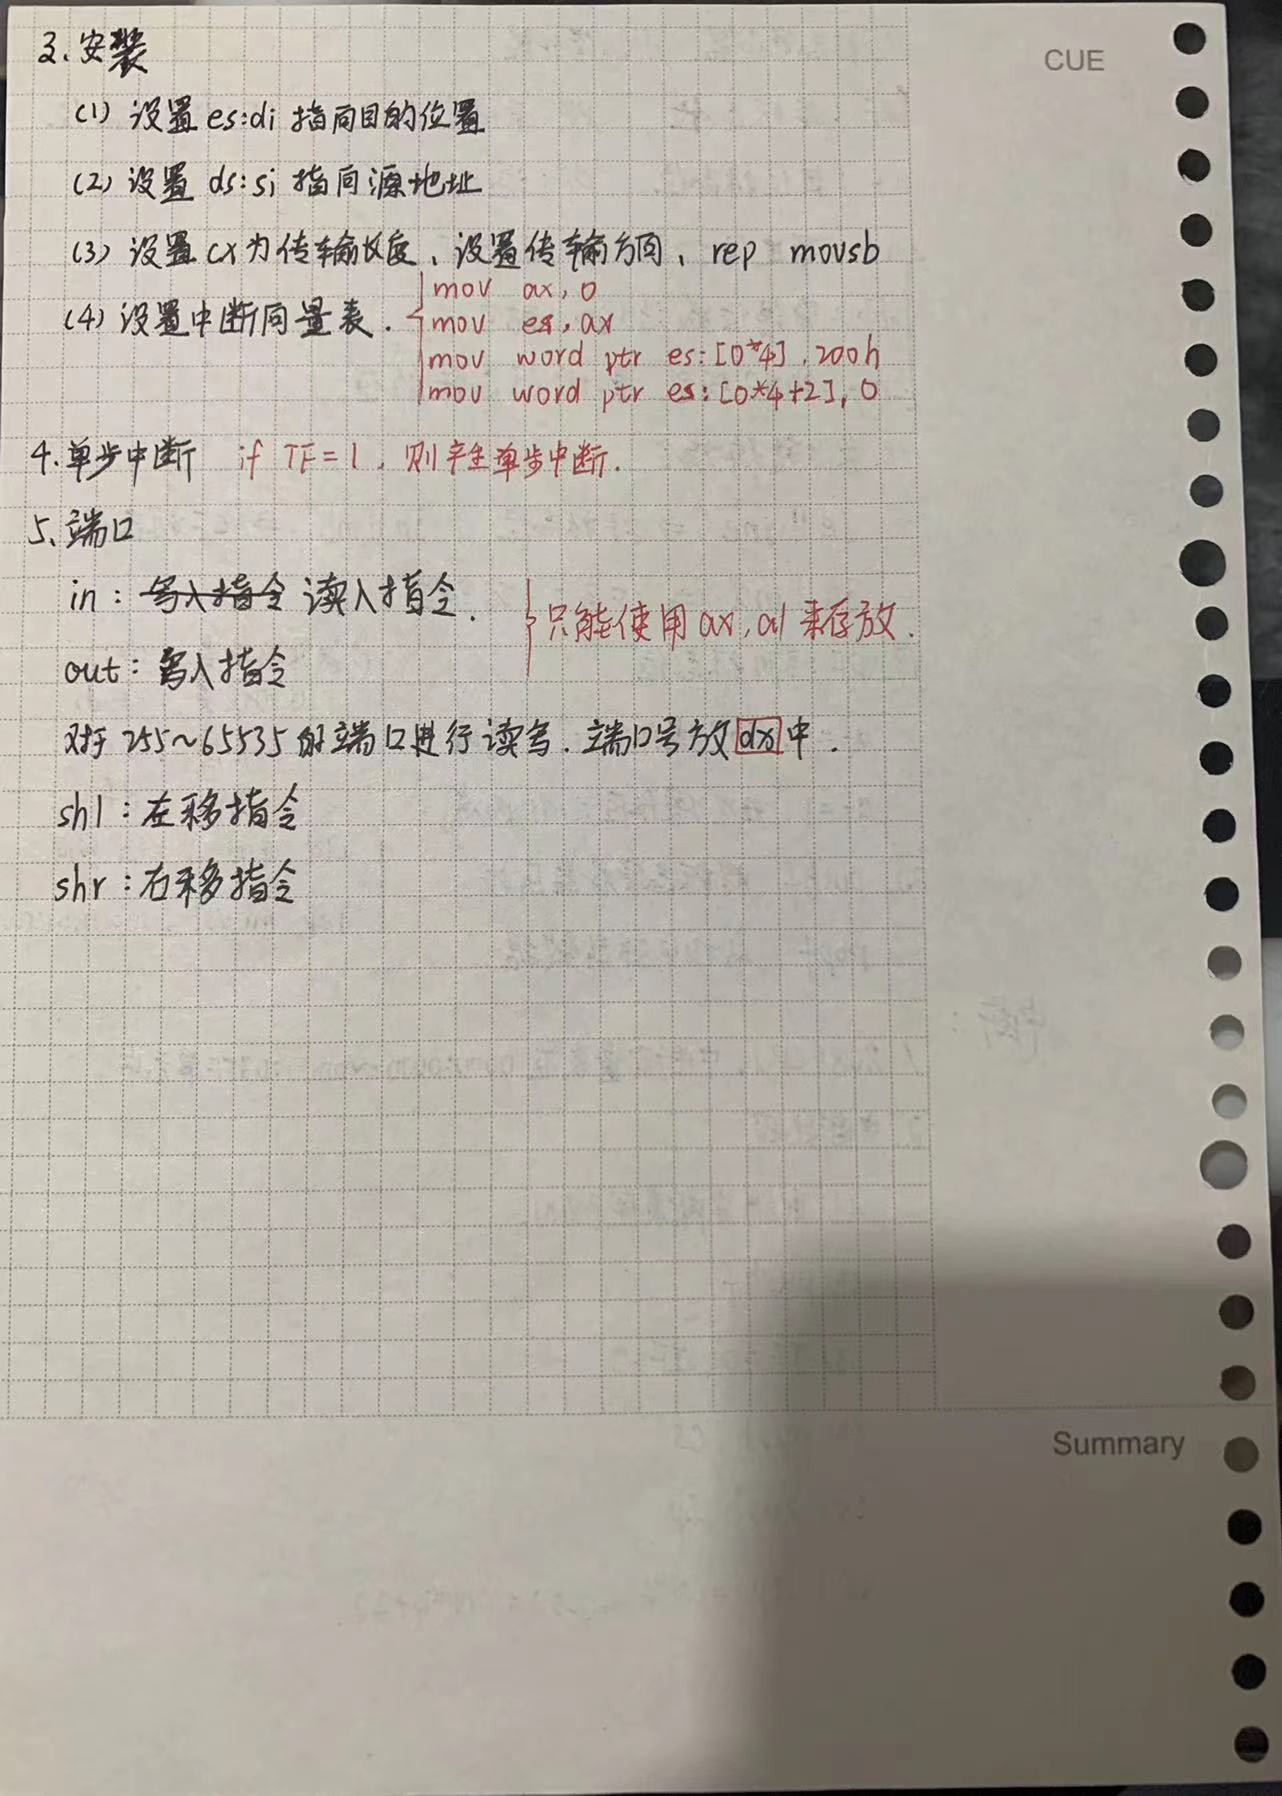 CUE
3、安装
(1) 设置 es:di 指向目的位置
(2) 设置 ds:si 指向源地址
(3) 设置 cx为传输长度、设置传输方向、rep movsb
(4) 设置中断向量表.
mov ax,0
mov es,ax
mov word ptr es:[0*4],200h
mov word ptr es:[0*4+2],0
4.单步中断 if TF=1,则产生单步中断.
5、端口
in: 写入指令 读入指令.
只能使用 ax,al 来存放.
out: 写入指令
对于 255~65535 的端口进行读写.端口号放dx中.
shl:左移指令
shr:右移指令
Summary